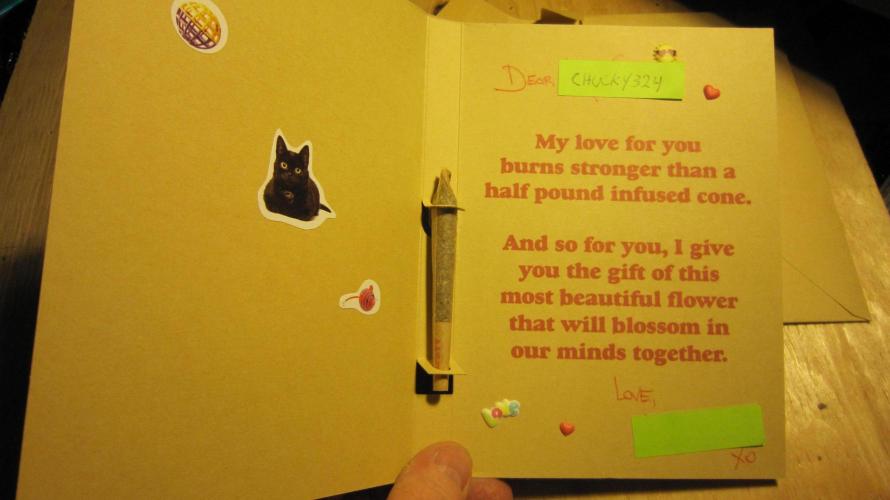 Dear, CHUCKY324
My love for you
burns stronger than a
half pound infused cone.
And so for you, I give
you the gift of this
most beautiful flower
that will blossom in
our minds together.
LOVE,
XO